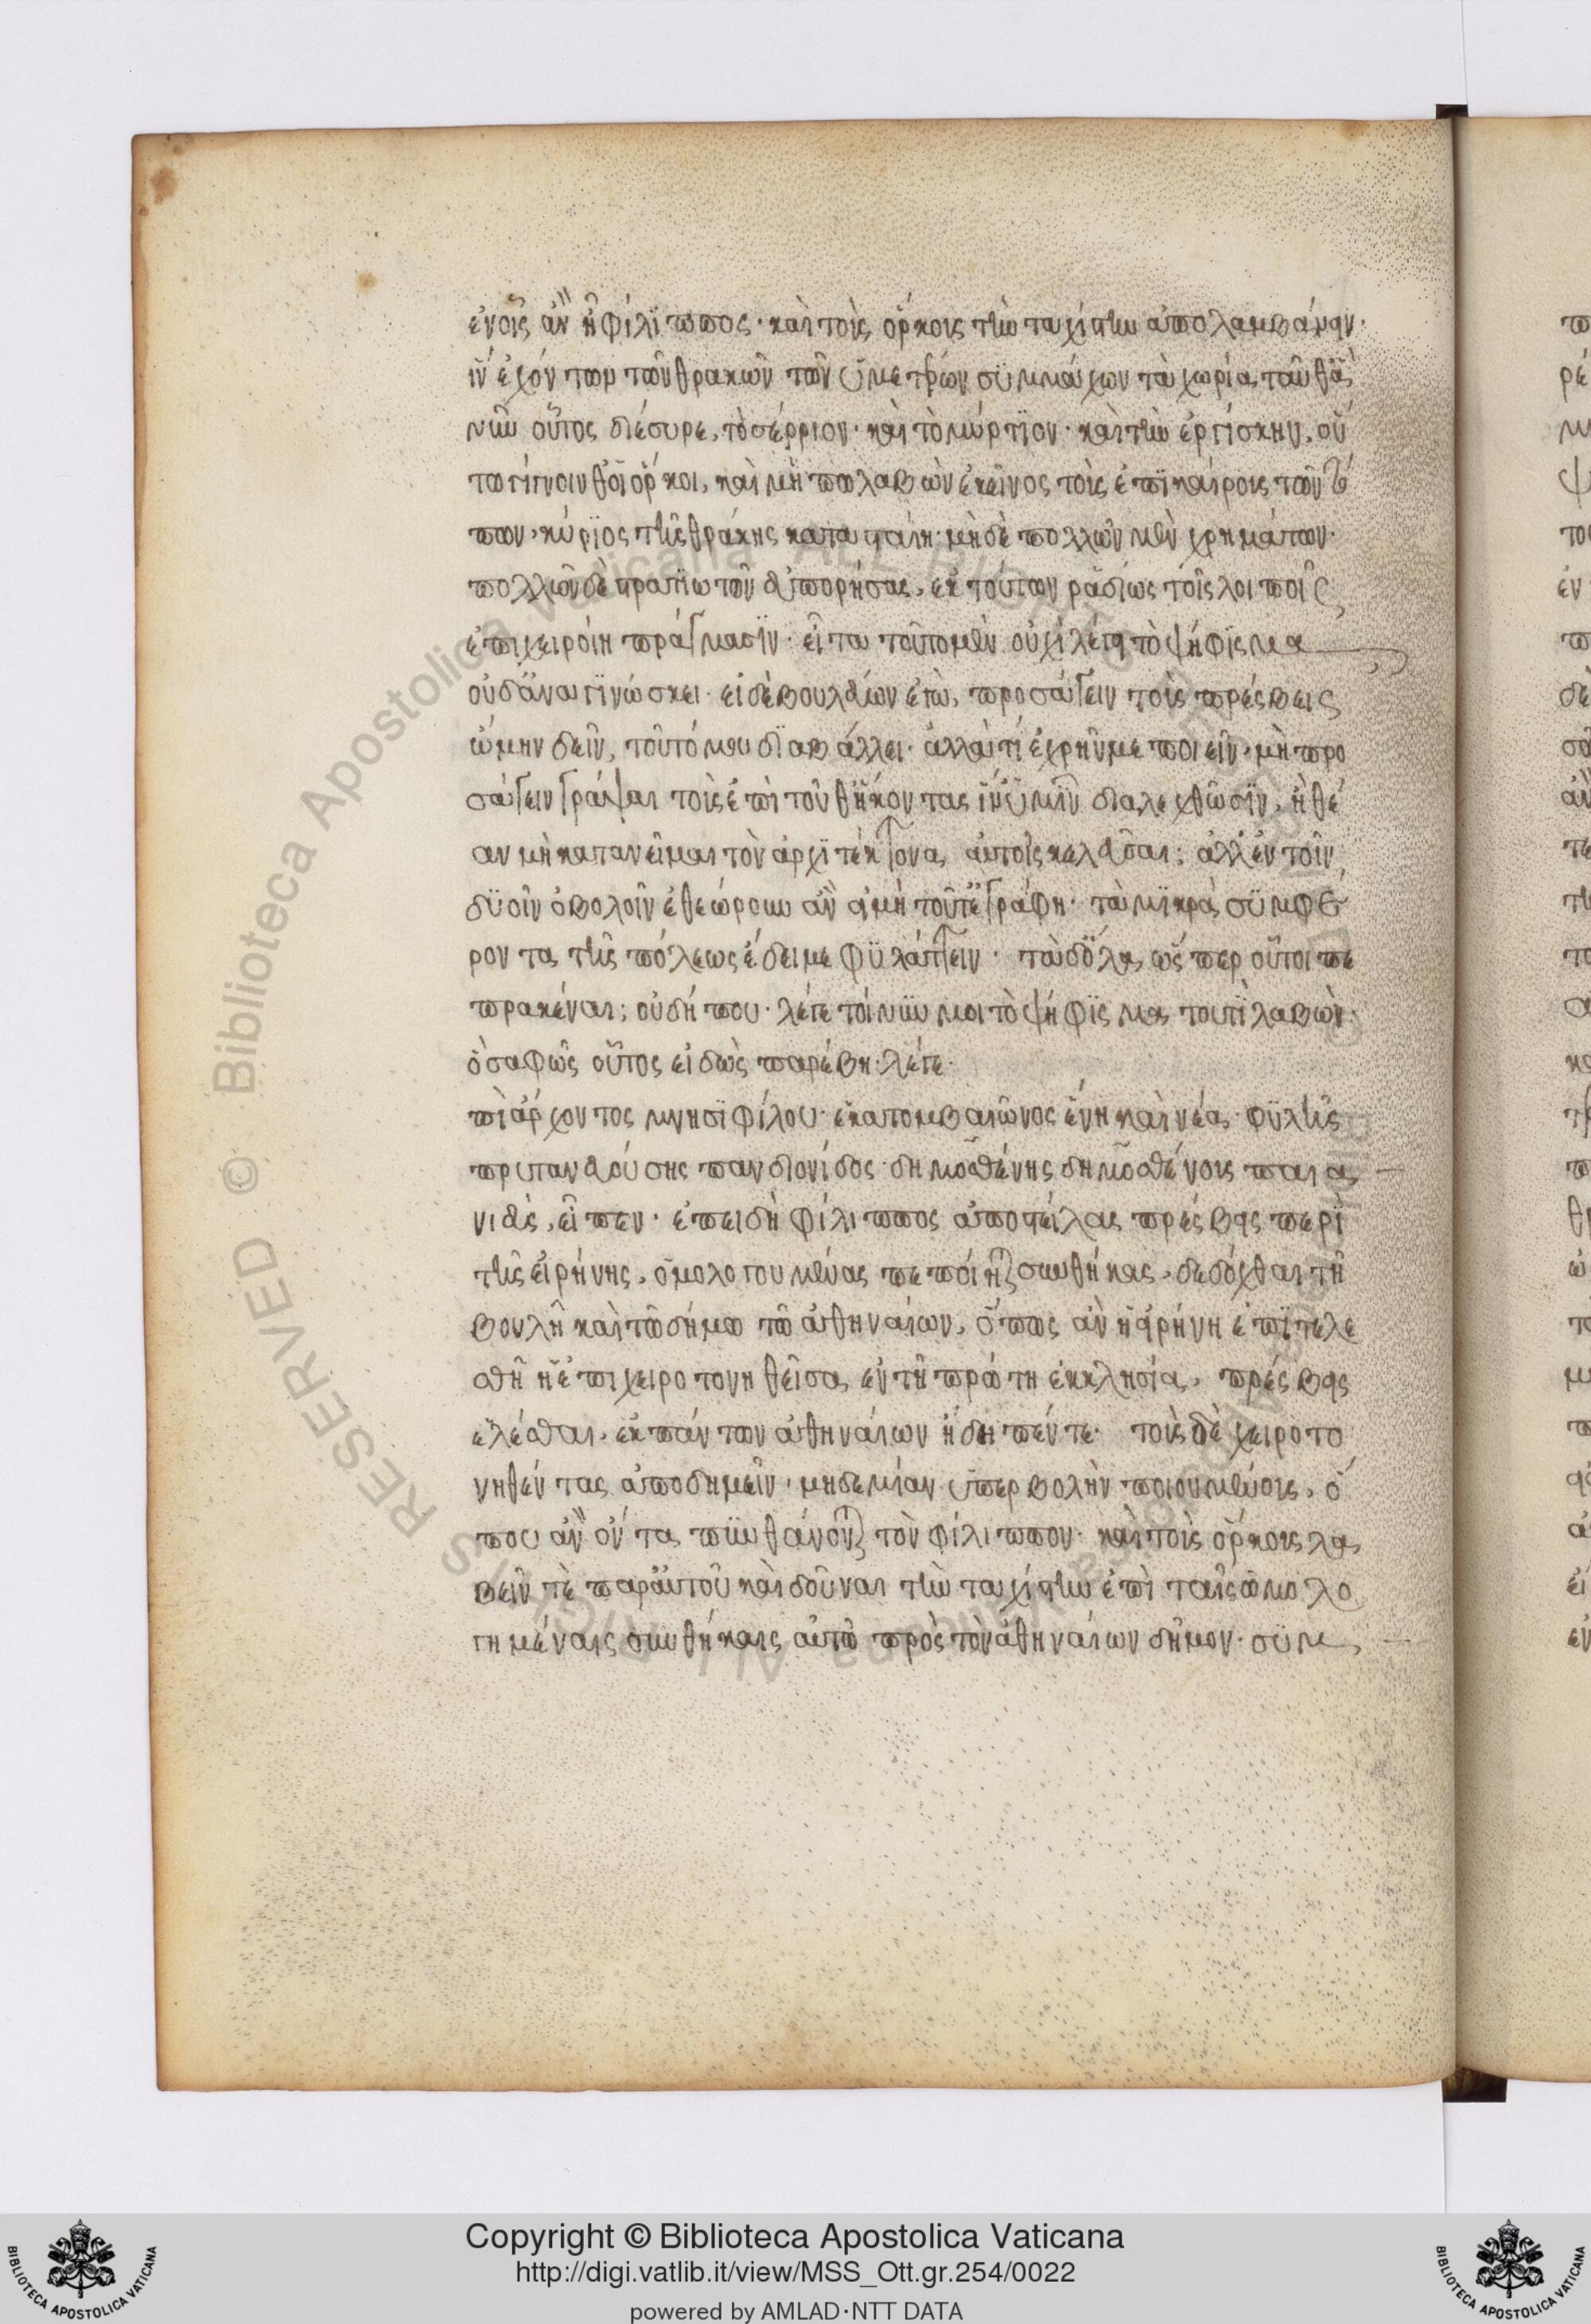 ἐν οἷς ἂν ᾖ φίλιππος· καὶ τοὺς ὅρκους τὴν ταχίστην ἀπολαμβάνειν·
ἵν' ἐχόντων τῶν θρακῶν τῶν ὑμετέρων συμμάχων τὰ χωρία ταῦθ' ἃ
νῦν οὗτος διέσυρε, τὸ σέρριον· καὶ τὸ μύρτιον· καὶ τὴν ἐργίσκην, οὕ
τω γίγνοινθ' οἱ ὅρκοι, καὶ μὴ προλαβὼν ἐκεῖνος τοὺς ἐπικαίρους τῶν τό
πων, κύριος τῆς θράκης κατασταίη· μὴ δὲ πολλῶν μὲν χρημάτων·
πολλῶν δὲ στρατιωτῶν εὐπορήσας, ἐκ τούτων ῥαδίως τοῖς λοιποῖς
ἐπιχειροίη πράγμασιν· εἶτα τοῦτο μὲν οὐχὶ λέγει τὸ ψήφισμα
οὐδ' ἀναγινώσκει· εἰ δὲ βουλεύων ἐγὼ, προσάγειν τοὺς πρέσβεις
ᾤμην δεῖν, τοῦτό μου διαβάλλει· ἀλλὰ τί ἐχρῆν με ποιεῖν· μὴ προ
σάγειν γράψαι τοὺς ἐπὶ τοῦθ' ἥκοντας ἵν' ὑμῖν διαλεχθῶσιν, ἢ θέ
αν μὴ κατανεῖμαι τὸν ἀρχιτέκτονα αὐτοῖς κελεῦσαι; ἀλλ' ἐν τοῖν
δυοῖν ὀβολοῖν ἐθεώρουν ἂν εἰ μὴ τοῦτ' ἐγράφη· τὰ μικρὰ συμφέ
ροντα τῆς πόλεως ἔδει με φυλάττειν· τὰ δ' ὅλα, ὥσπερ οὗτοι πε
πρακέναι; οὐ δήπου· λέγε τοίνυν μοι τὸ ψήφισμα τουτὶ λαβὼν·
ὃ σαφῶς οὗτος εἰδὼς παρέβη· λέγε·
πὶ ἄρχοντος μνησιφίλου· ἑκατομβαιῶνος ἕνῃ καὶ νέᾳ· φυλῆς
πρυτανευούσης πανδιονίδος· δημοσθένης δημοσθένους παια
νιεὺς, εἶπεν· ἐπειδὴ φίλιππος ἀποστείλας πρέσβεις περὶ
τῆς εἰρήνης, ὁμολογουμένας πεποίηται συνθήκας, δεδόχθαι τῇ
βουλῇ καὶ τῷ δήμῳ τῷ ἀθηναίων, ὅπως ἂν ἡ εἰρήνη ἐπιτελε
σθῇ ἡ ἐπιχειροτονηθεῖσα ἐν τῇ πρώτῃ ἐκκλησίᾳ, πρέσβεις
ἑλέσθαι, ἐκ πάντων ἀθηναίων ἤδη πέντε· τοὺς δὲ χειροτο
νηθέντας ἀποδημεῖν, μηδεμίαν ὑπερβολὴν ποιουμένους, ὅ
που ἂν ὄντα πυνθάνονται τὸν φίλιππον· καὶ τοὺς ὅρκους λα
βεῖν τὲ παρ' αὐτοῦ καὶ δοῦναι τὴν ταχίστην ἐπὶ ταῖς ὡμολο
γημέναις συνθήκαις αὐτῷ πρὸς τὸν ἀθηναίων δῆμον· συμ
Copyright © Biblioteca Apostolica Vaticana
http://digi.vatlib.it/view/MSS_Ott.gr.254/0022
powered by AMLAD·NTT DATA